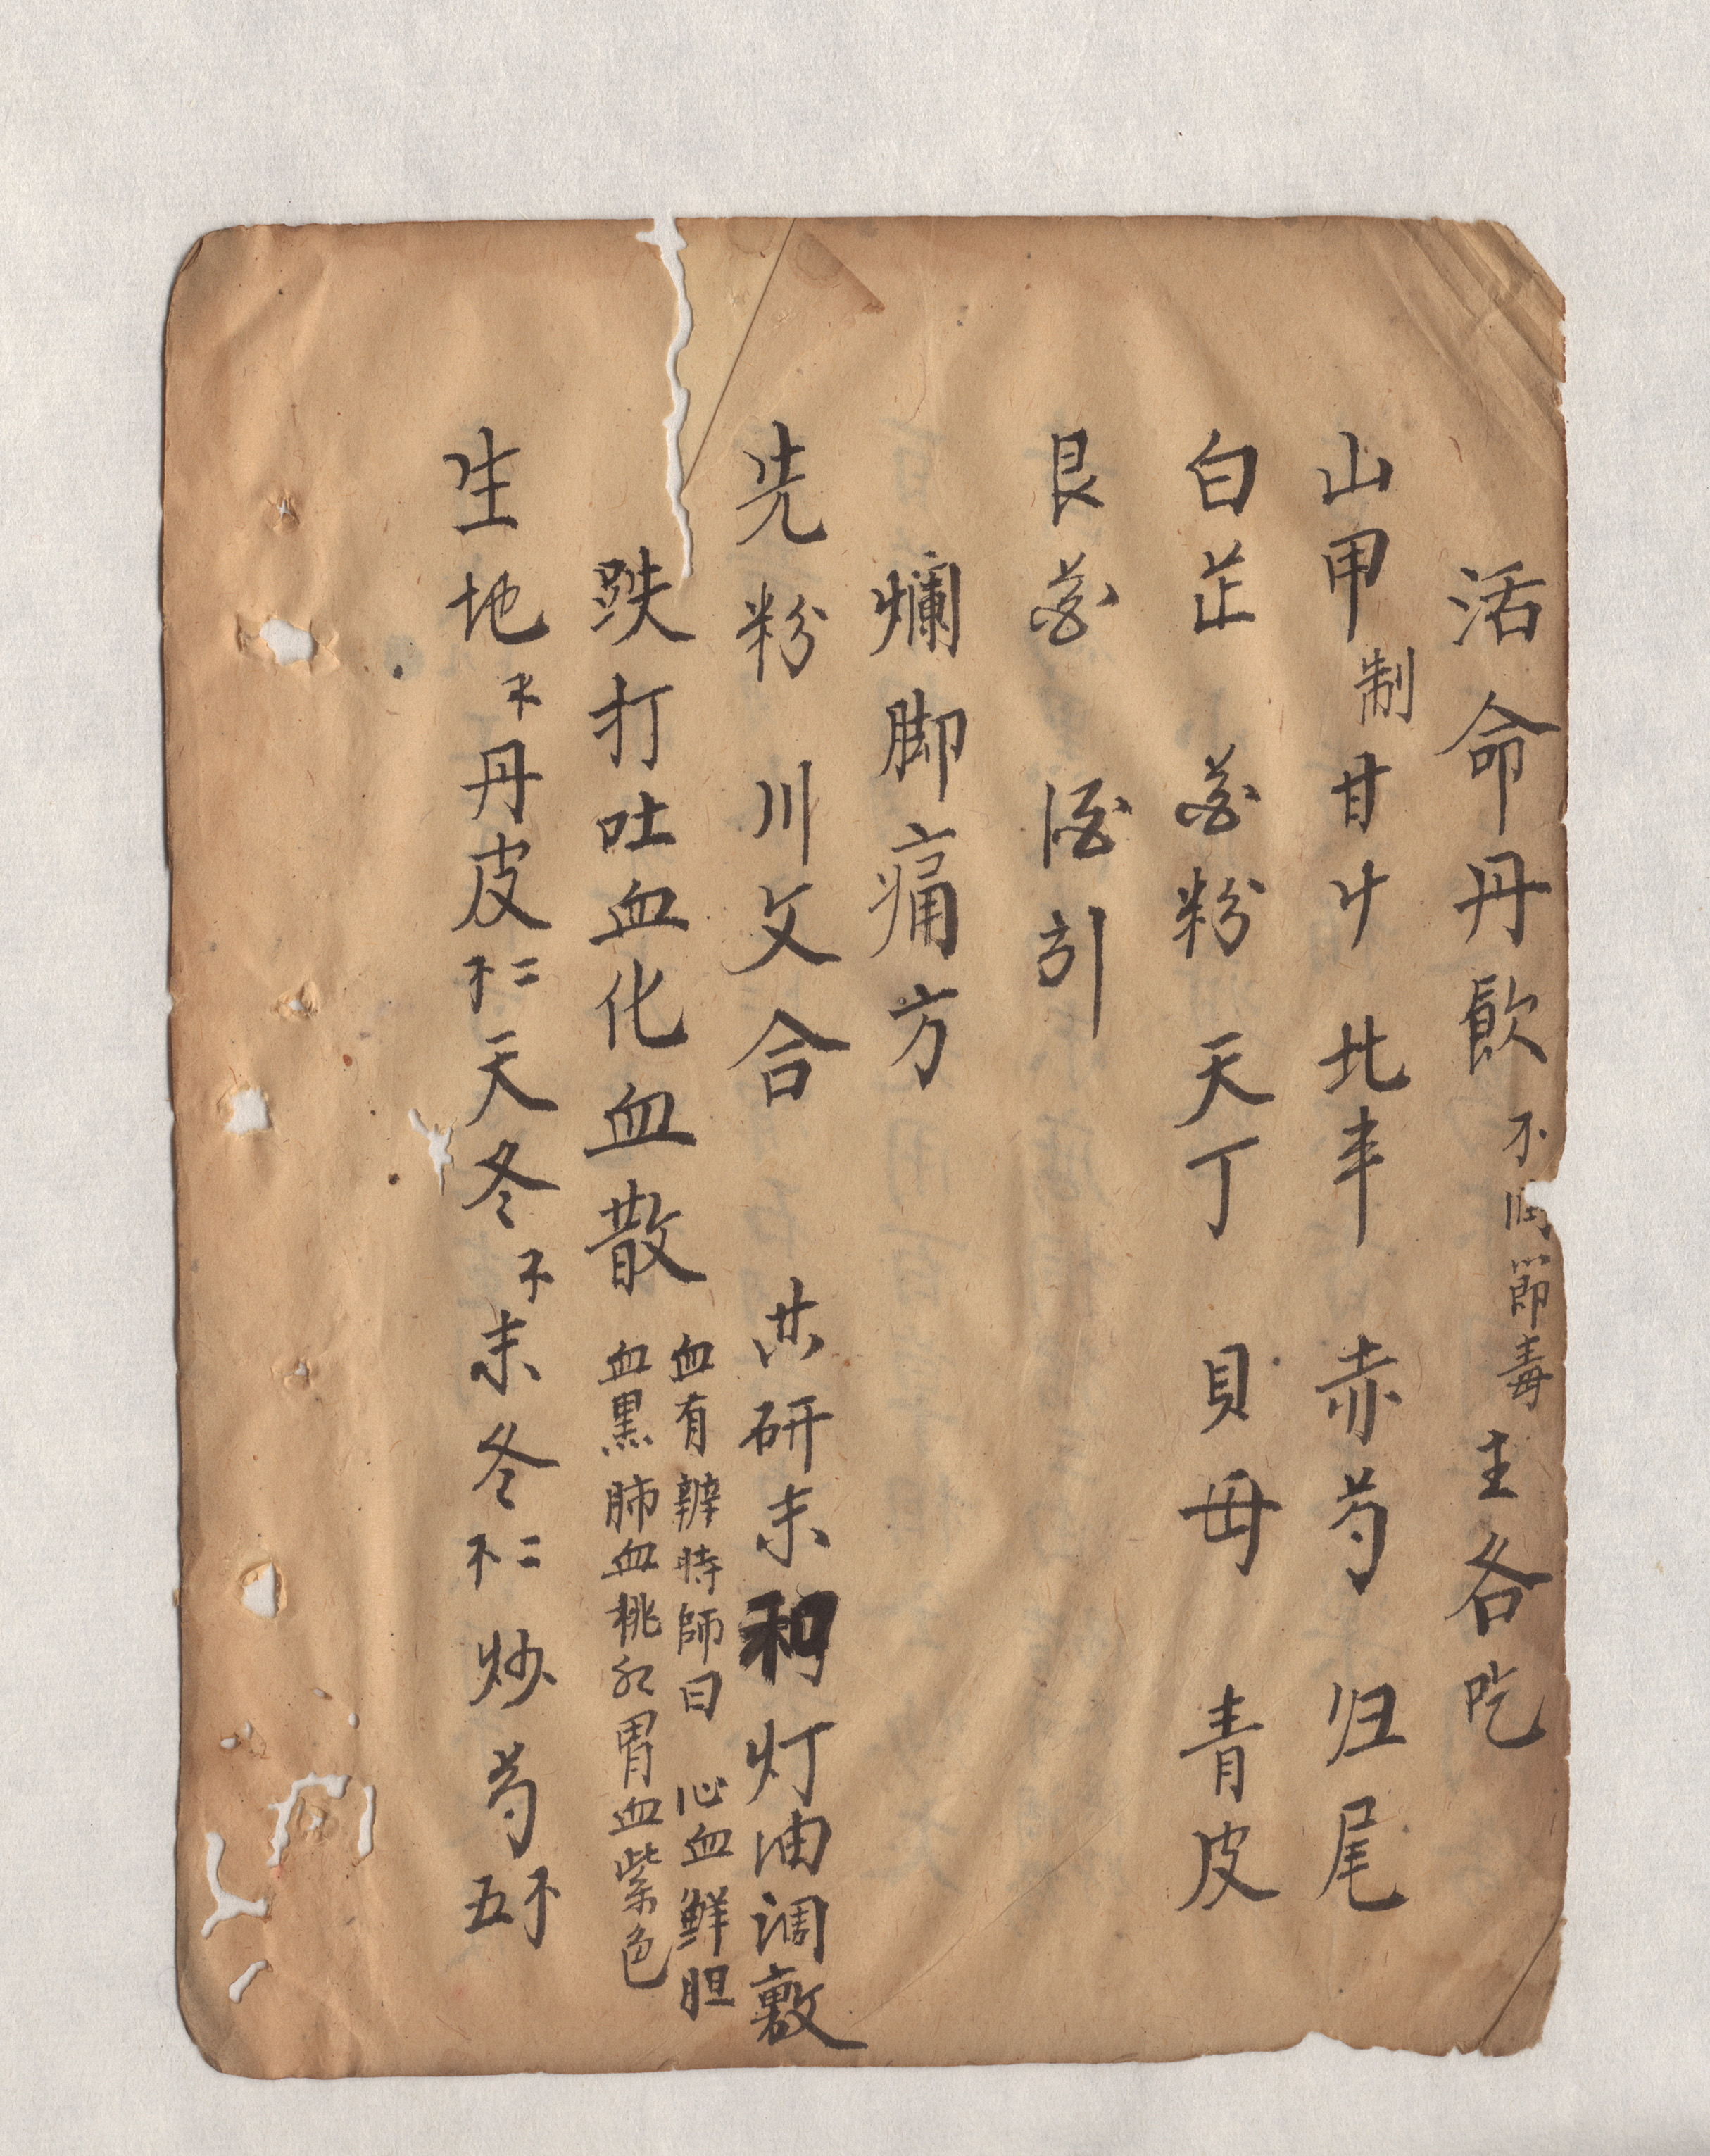 活命丹飲 不 節毒 主各吃
山甲制 甘廾 北丰 赤芍 归尾
白芷 花粉 天丁 貝母 青皮
艮花 酒引
爛脚痛方
先粉 川文合 共研末和灯油调敷
跌打吐血化血散
血有辨時師曰 心血鲜胆
血黑肺血桃红胃血紫色
生地 丹皮 天冬 末冬 炒芍